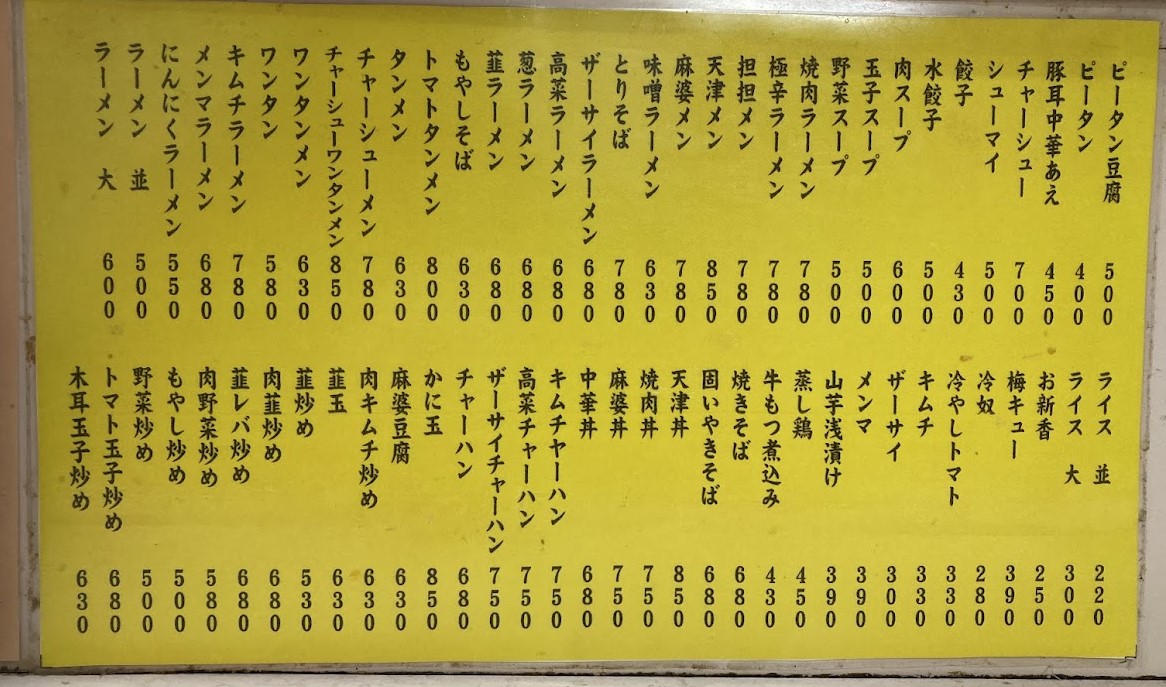 ピータン豆腐 500
ピータン 400
豚耳中華あえ 450
チャーシュー 700
シューマイ 500
餃子 430
水餃子 500
肉スープ 600
玉子スープ 500
野菜スープ 500
焼肉ラーメン 780
極辛ラーメン 780
担担メン 780
天津メン 850
麻婆メン 780
味噌ラーメン 630
とりそば 780
ザーサイラーメン 680
高菜ラーメン 680
葱ラーメン 680
韮ラーメン 680
もやしそば 630
トマトタンメン 800
タンメン 630
チャーシューメン 780
チャーシューワンタンメン 850
ワンタンメン 630
ワンタン 580
キムチラーメン 780
メンマラーメン 680
にんにくラーメン 550
ラーメン 並 500
ラーメン 大 600
ライス 並 220
ライス 大 300
お新香 250
梅キュー 390
冷奴 280
冷やしトマト 330
キムチ 330
ザーサイ 300
メンマ 390
山芋浅漬け 390
蒸し鶏 450
牛もつ煮込み 430
焼きそば 680
固いやきそば 680
天津丼 850
焼肉丼 750
麻婆丼 750
中華丼 680
キムチャーハン 750
高菜チャーハン 750
ザーサイチャーハン 750
チャーハン 680
かに玉 850
麻婆豆腐 630
肉キムチ炒め 630
韮玉 630
韮炒め 530
肉韮炒め 680
韮レバ炒め 680
肉野菜炒め 580
もやし炒め 500
野菜炒め 500
トマト玉子炒め 680
木耳玉子炒め 630